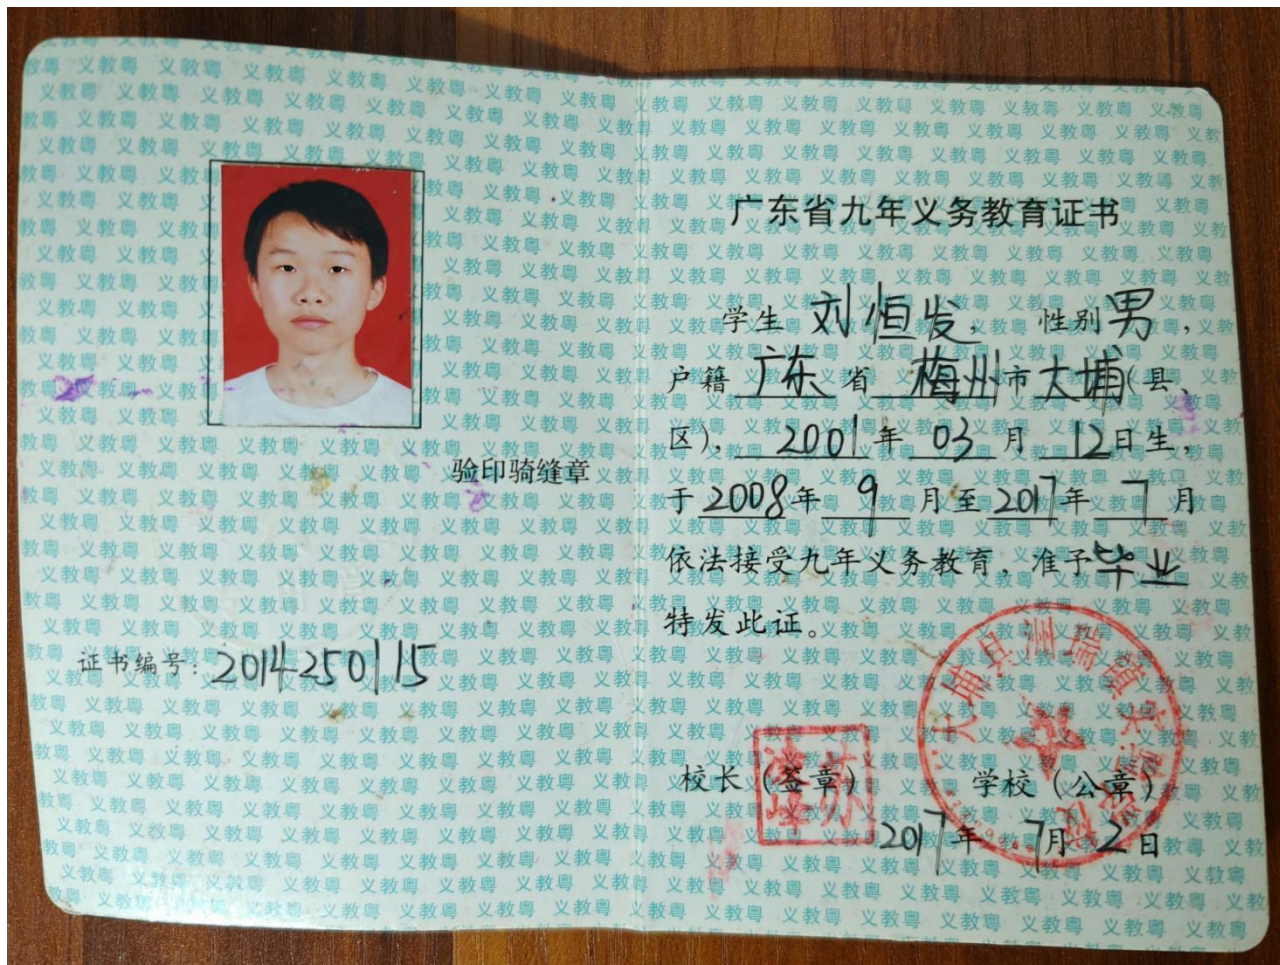 验印骑缝章
证书编号：2014250115
广东省九年义务教育证书
学生 刘恒发， 性别男，
户籍 广东 省 梅州市大埔（县、
区），2001年 03 月 12日生，
于2008年 9 月至2017年 7 月
依法接受九年义务教育，准予毕业
特发此证。
校长（签章） 学校（公章）
2017年 7月 2日